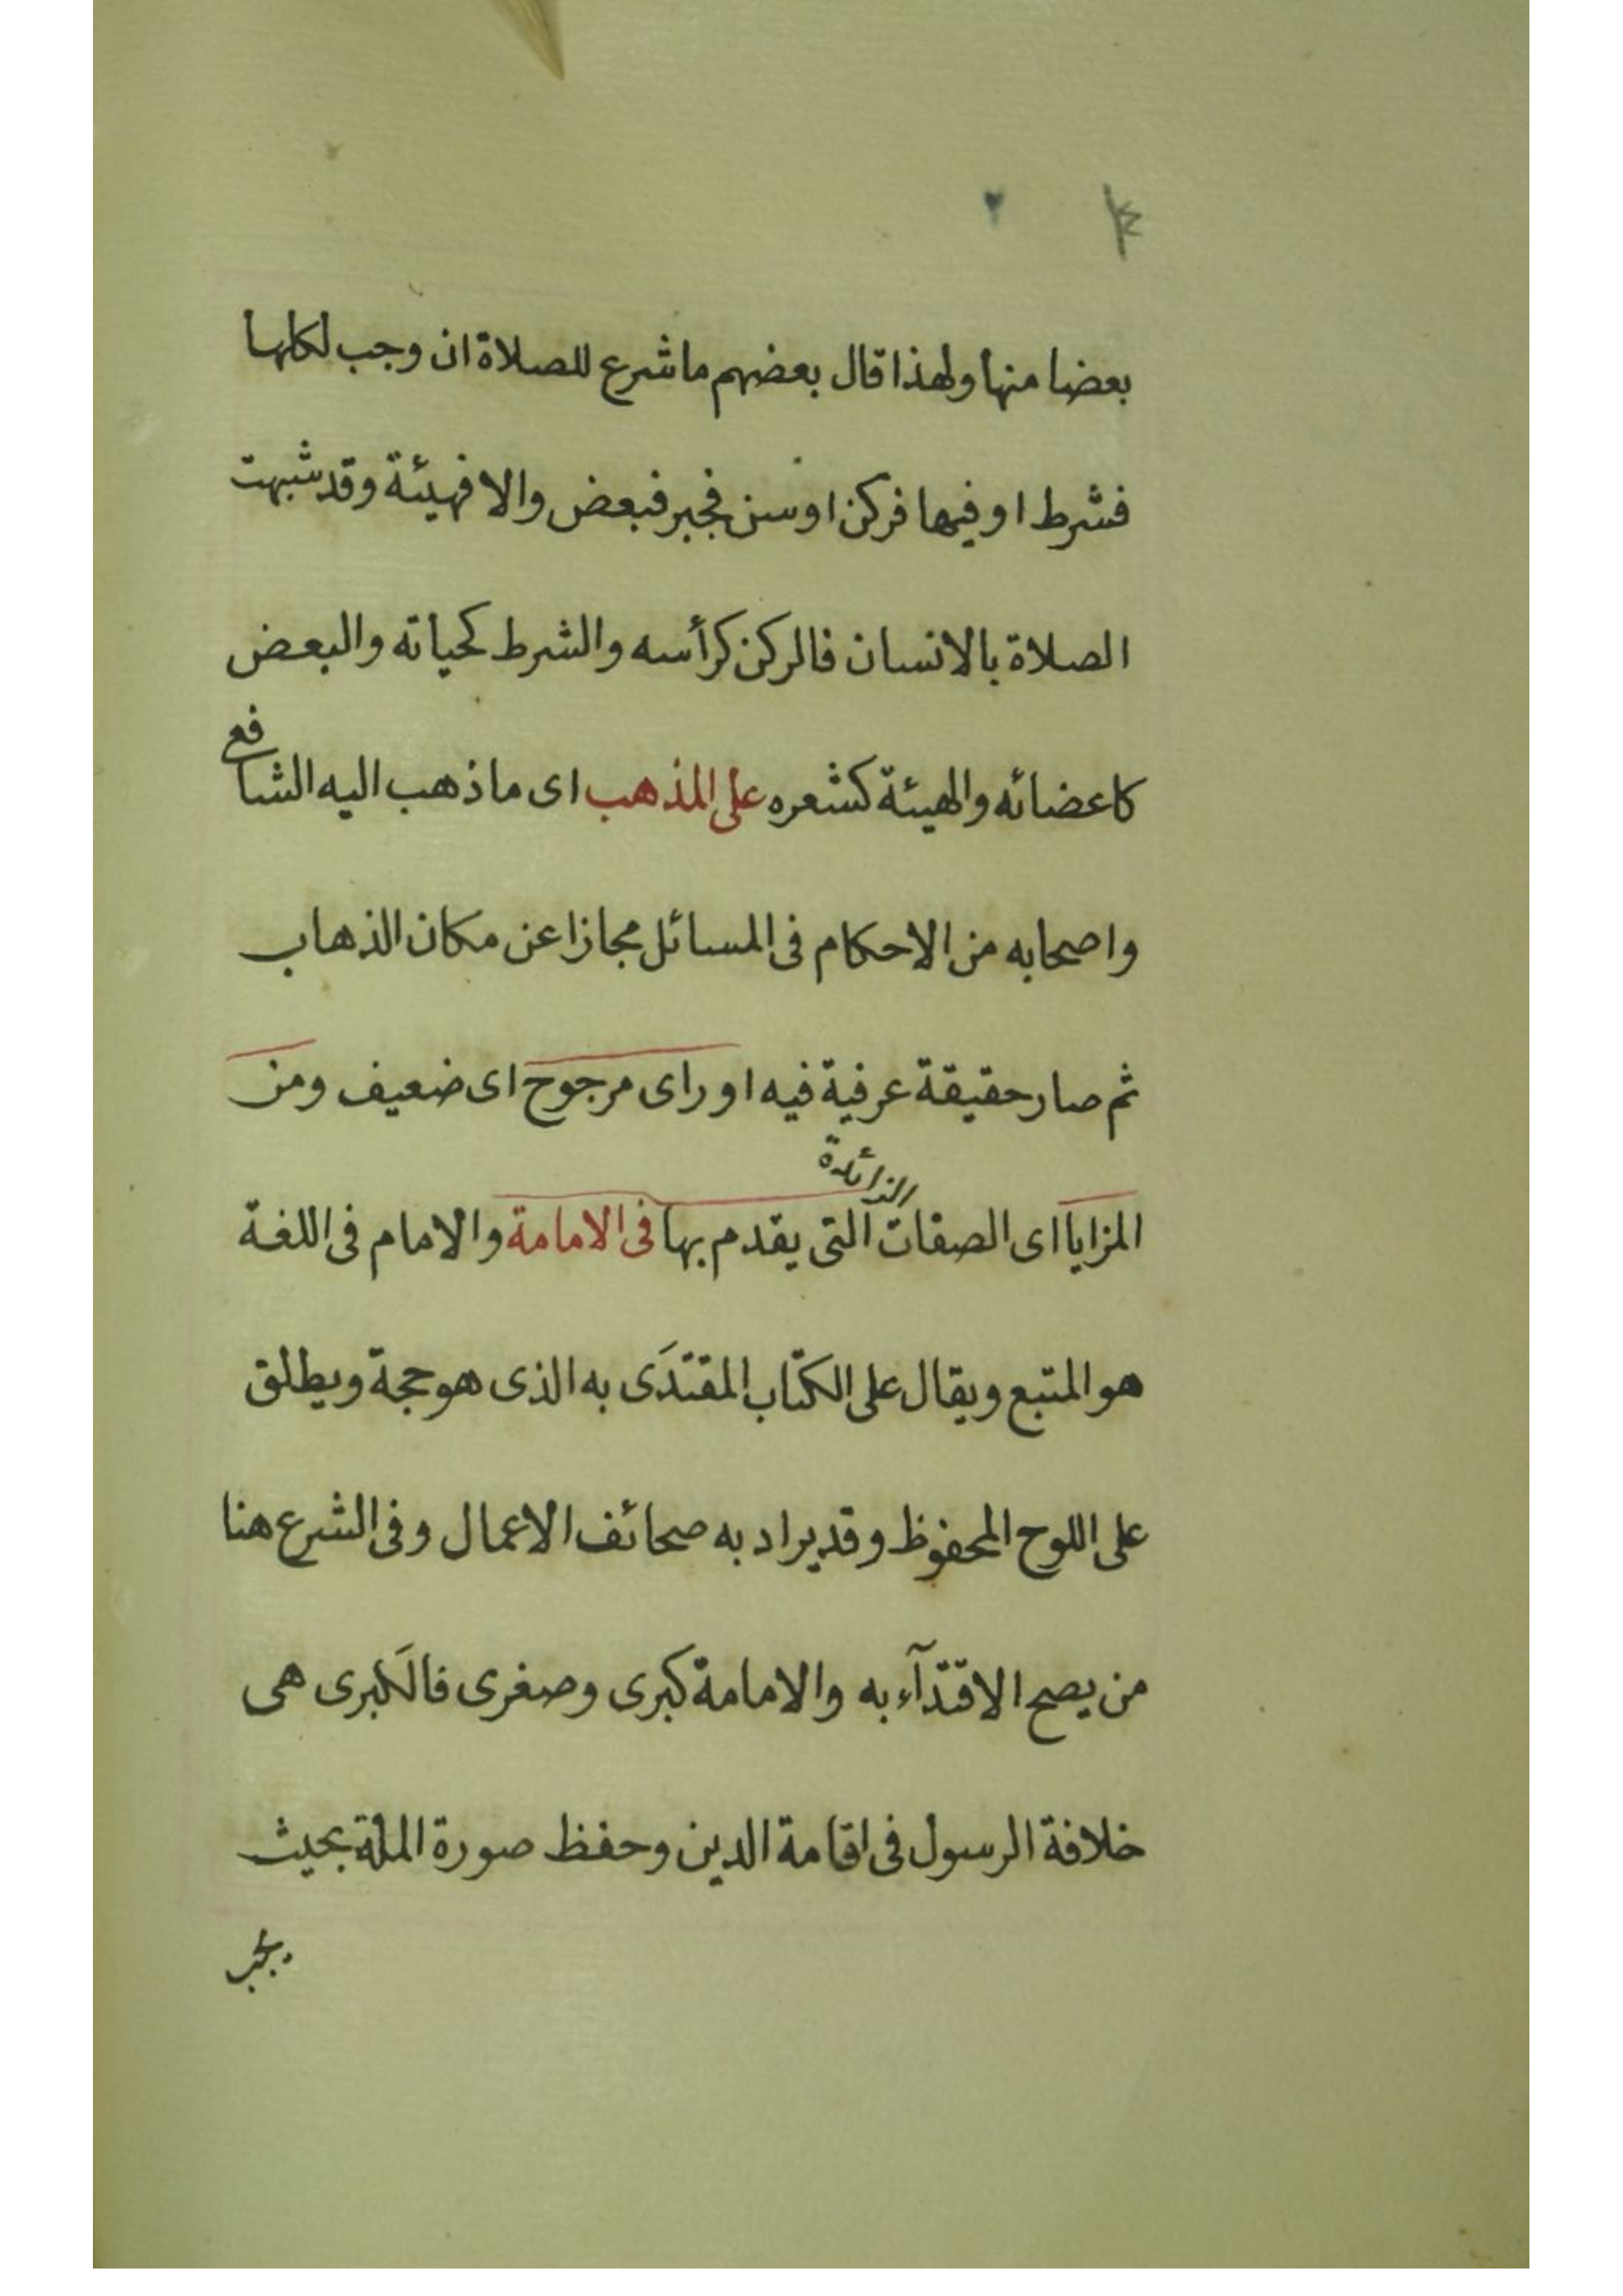 بعضا منها ولهذا قال بعضهم ما شرع للصلاة ان وجب لكلها
فشرط او فيها فركن او سن فجبر فبعض والا فهيئة وقد شبهت
الصلاة بالانسان فالركن كرأسه والشرط كحياته والبعض
كاعضائه والهيئة كشعره على المذهب اى ما ذهب اليه الشافعى
واصحابه من الاحكام فى المسائل مجازا عن مكان الذهاب
ثم صار حقيقة عرفية فيه او راى مرجوح اى ضعيف ومن
المزايا اى الصفات الزائدة التى يقدم بها فى الامامة والامام فى اللغة
هو المتبع ويقال على الكتاب المقتدَى به الذى هو حجة ويطلق
على اللوح المحفوظ وقد يراد به صحائف الاعمال وفى الشرع هنا
من يصح الاقتدآء به والامامة كبرى وصغرى فالكَبرى هى
خلافة الرسول فى اقامة الدين وحفظ صورة الملة بحيث
يجب